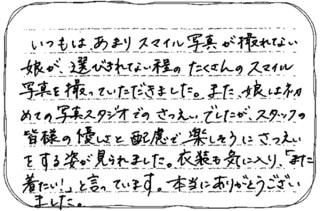 いつもは あまり スマイル写真が撮れない
娘が、選びきれない程の たくさんの スマイル
写真を撮っていただきました。また、娘は初
めての写真スタジオでの さつえい でしたが、スタッフの
皆様の優しさと配慮で楽しそうにさつえい
をする姿が見られました。衣装も気に入り、「また
着たい！」と言っています。本当にありがとうござい
ました。